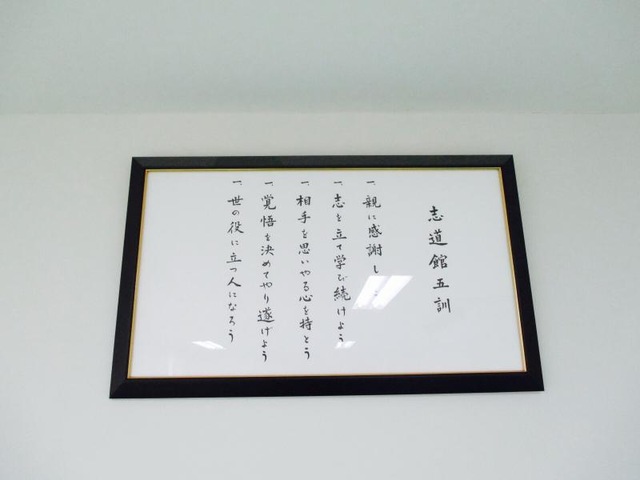 志道館五訓
一、親に感謝し
一、志を立て学び続けよう
一、相手を思いやる心を持とう
一、覚悟を決めてやり遂げよう
一、世の役に立つ人になろう